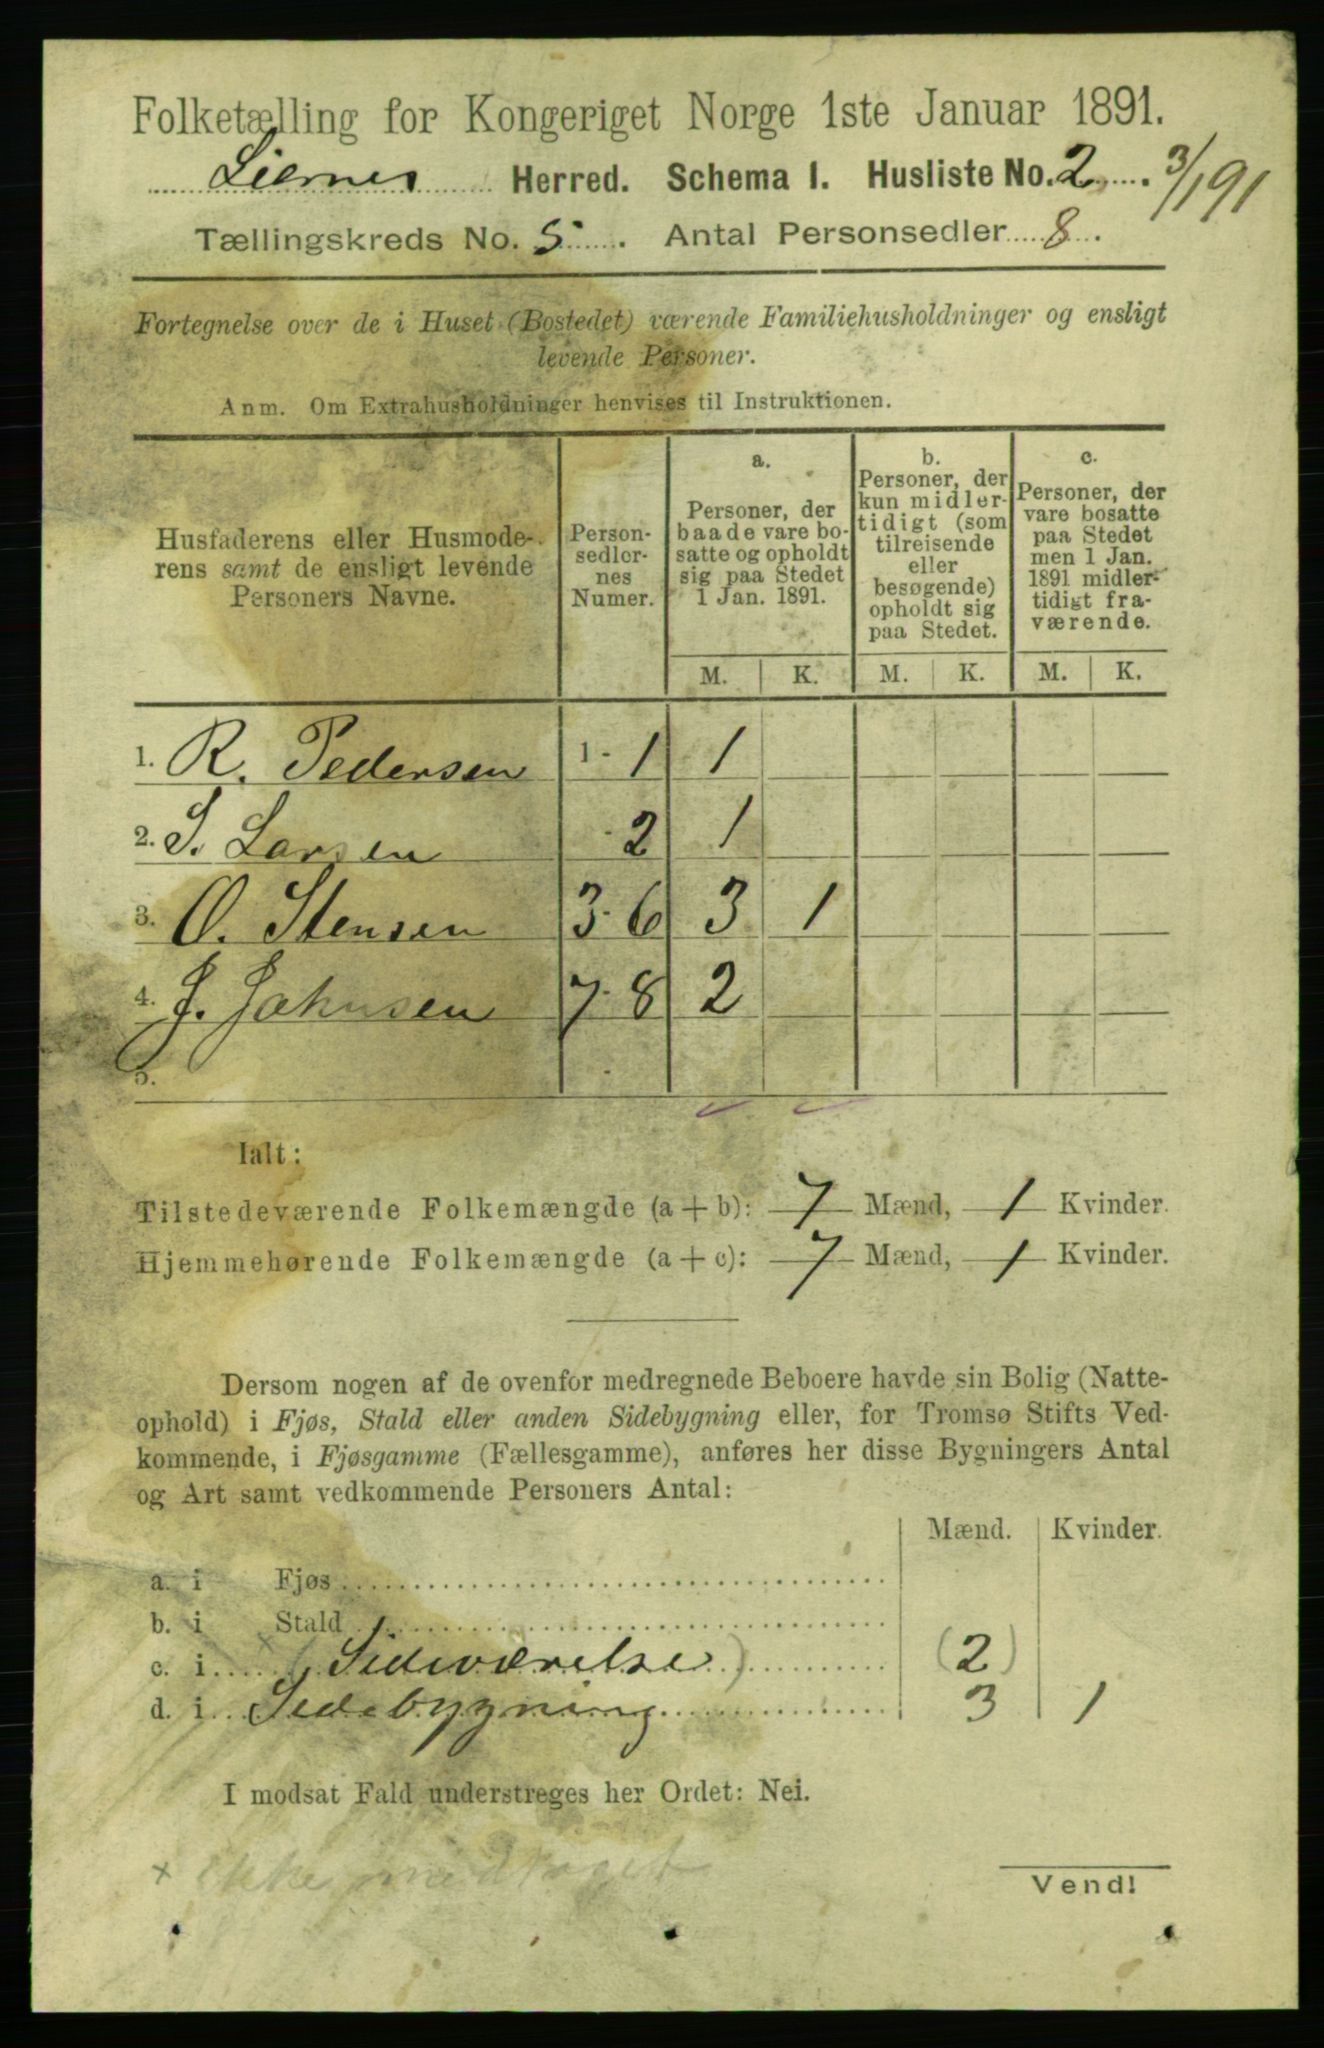 Folketælling for Kongeriget Norge 1ste Januar 1891.
Liernes Herred. Schema 1. Husliste No. 2. 3/1 91
Tællingskreds No. 5. Antal Personsedler 8.
Fortegnelse over de i Huset (Bostedet) værende Familiehusholdninger og ensligt
levende Personer.
Anm. Om Extrahusholdninger henvises til Instruktionen.
Husfaderens eller Husmode-
rens samt de ensligt levende
Personers Navne.
Person-
sedler-
nes
Numer.
a.
Personer, der
baade vare bo-
satte og opholdt
sig paa Stedet
1 Jan. 1891.
b.
Personer, der
kun midler-
tidigt (som
tilreisende
eller
besøgende)
opholdt sig
paa Stedet.
c.
Personer, der
vare bosatte
paa Stedet
men 1 Jan.
1891 midler-
tidigt fra-
værende.
M. K. M. K. M. K.
1. R. Pedersen 1 - 1 1
2. S. Larsen - 2 1
3. O. Stensen 3 - 6 3 1
4. J. Johnsen 7 - 8 2
5. -
Ialt:
Tilstedeværende Folkemængde (a + b): 7 Mænd, 1 Kvinder.
Hjemmehørende Folkemængde (a + c): 7 Mænd, 1 Kvinder.
Dersom nogen af de ovenfor medregnede Beboere havde sin Bolig (Natte-
ophold) i Fjøs, Stald eller anden Sidebygning eller, for Tromsø Stifts Ved-
kommende, i Fjøsgamme (Fællesgamme), anføres her disse Bygningers Antal
og Art samt vedkommende Personers Antal:
Mænd. Kvinder.
a. i Fjøs
b. i Stald
c. i × (Sideværelse) (2)
d. i Sidebygning 3 1
I modsat Fald understreges her Ordet: Nei.
× Ikke medtaget
Vend!